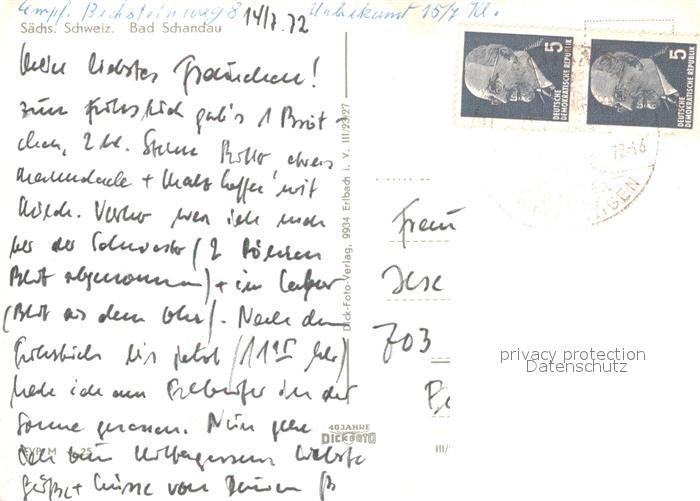 Empf. Bechsteinweg 8 Unbekannt 15/7 Kl.
14/7. 72
Sächs. Schweiz. Bad Schandau
Mein liebstes Frauchen!
zum Frühstück gab's 1 Bröt-
chen, 2 kl. Stückchen Butter etwas
Marmelade + Malzkaffee mit
Milch. Vorher war ich noch
bei der Schwester (2 Röhrchen
Blut abgenommen) + im Labor
(Blut aus dem Ohr). Nach dem
Frühstück bis jetzt (11 15 Uhr)
habe ich am Elbeufer in der
Sonne gesessen. Nun gehe
ich zum Mittagessen. Liebste
Grüße + Küsse von Deinem
EVP M 0,25
Dick-Foto-Verlag, 9934 Erlbach i. V. III/23/27
40 JAHRE
DICK FOTO
5
DEUTSCHE
DEMOKRATISCHE REPUBLIK
5
DEUTSCHE
DEMOKRATISCHE REPUBLIK
72-16
Frau
Ilse
703
III/
privacy protection
Datenschutz